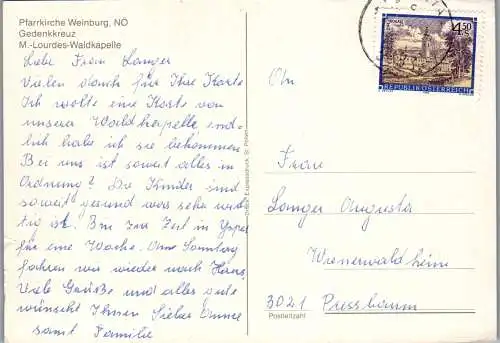 Pfarrkirche Weinburg, NÖ
Gedenkkreuz
M.-Lourdes-Waldkapelle
Liebe Frau Langer
Vielen dank für Ihre Karte
Ich wollte eine Karte von
unserer Waldkapelle, end-
lich habe ich sie bekommen
Bei uns ist soweit alles in
Ordnung? Die Kinder sind
soweit gesund was sehr wich-
tig ist. Bin zur Zeit in
für eine Woche. Am Sonntag
fahren wir wieder nach Haus,
Viele Grüße und alles gute
wünscht Ihnen
samt Familie
St. Pölten
4.50
S
REPUBLIK ÖSTERREICH
An
Frau
Langer Augusta
Wienerwaldheim
3021 Pressbaum
Postleitzahl